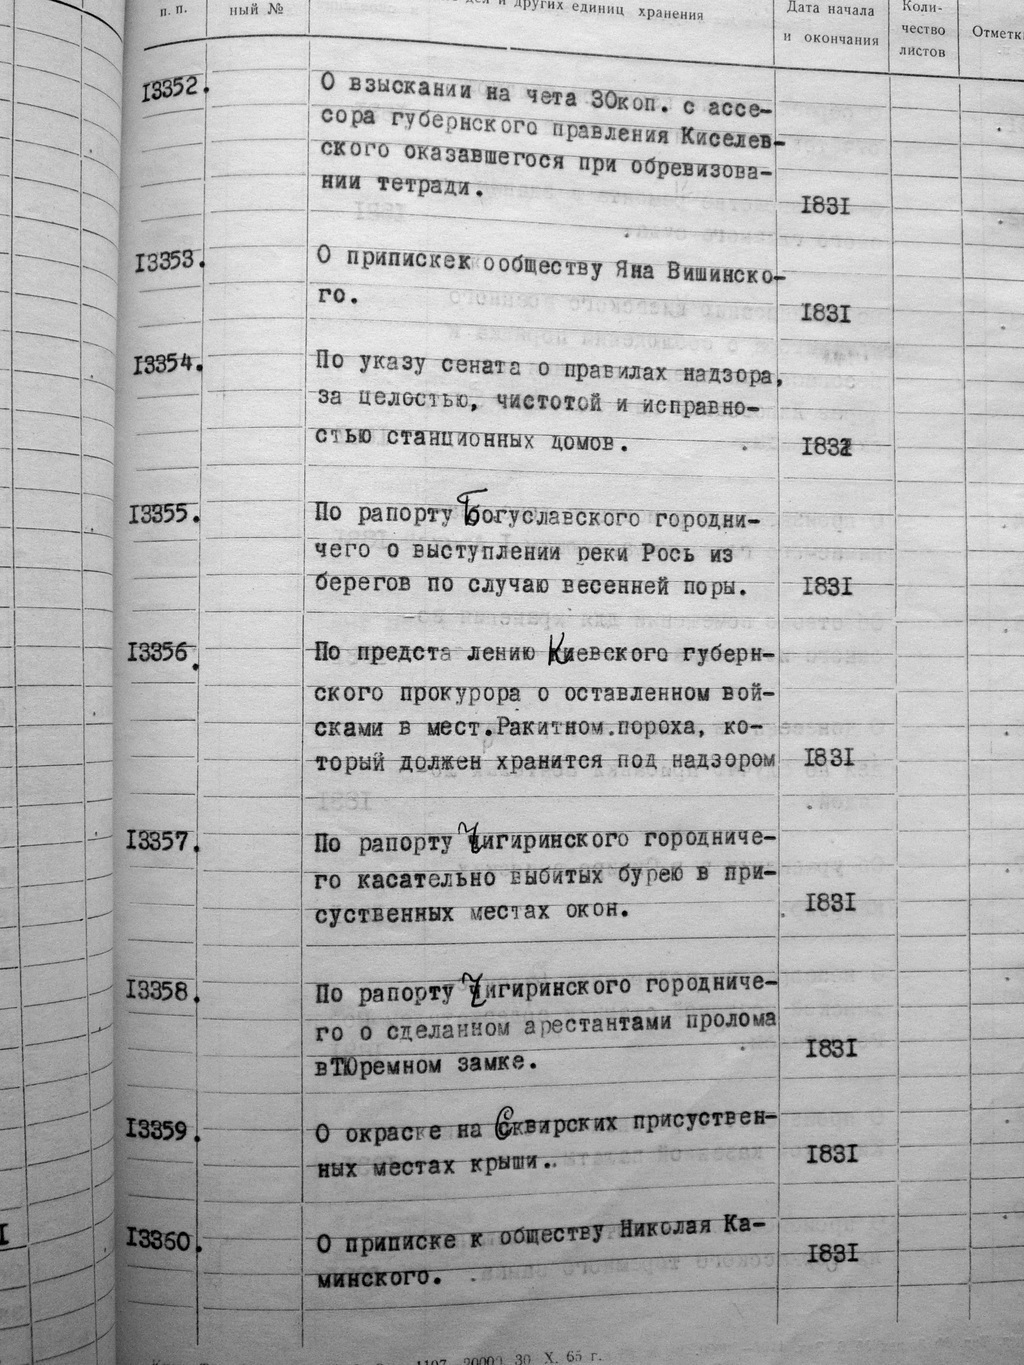 п. п.
ный №
дел и других единиц хранения
Дата начала
и окончания
Коли-
чество
листов
Отметк
13352.
О взыскании на чета 30коп. с ассе-
сора губернского правления Киселев-
ского оказавшегося при обревизова-
нии тетради.
1831
13353.
О припискек ообществу Яна Вишинско-
го.
1831
13354.
По указу сената о правилах надзора,
за целостью, чистотой и исправно-
стью станционных домов.
1831
13355.
По рапорту Богуславского городни-
чего о выступлении реки Рось из
берегов по случаю весенней поры.
1831
13356.
По предста лению Киевского губерн-
ского прокурора о оставленном вой-
сками в мест.Ракитном.пороха, ко-
торый должен хранится под надзором
1831
13357.
По рапорту Чигиринского городниче-
го касательно выбитых бурею в при-
суственных местах окон.
1831
13358.
По рапорту Чигиринского городниче-
го о сделанном арестантами пролома
вТЮремном замке.
1831
13359.
О окраске на Сквирских присуствен-
ных местах крыши..
1831
13360.
О приписке к обществу Николая Ка-
минского.
1831
1107 20000 30 X. 65 г.